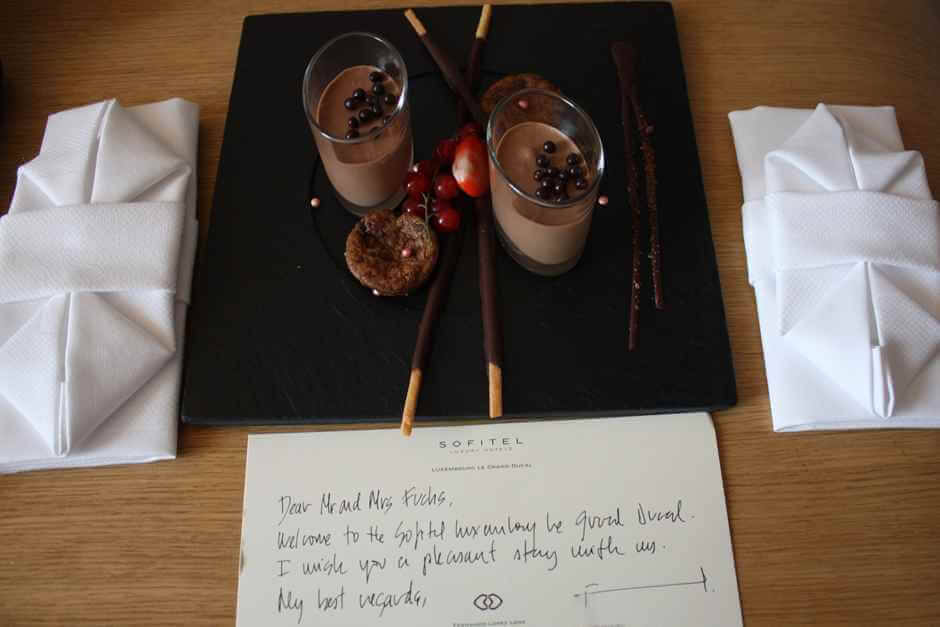 SOFITEL
LUXURY HOTELS
LUXEMBOURG LE GRAND DUCAL
Dear Mr and Mrs Fuchs,
Welcome to the Sofitel Luxembourg Le Grand Ducal.
I wish you a pleasant stay with us.
My best regards,